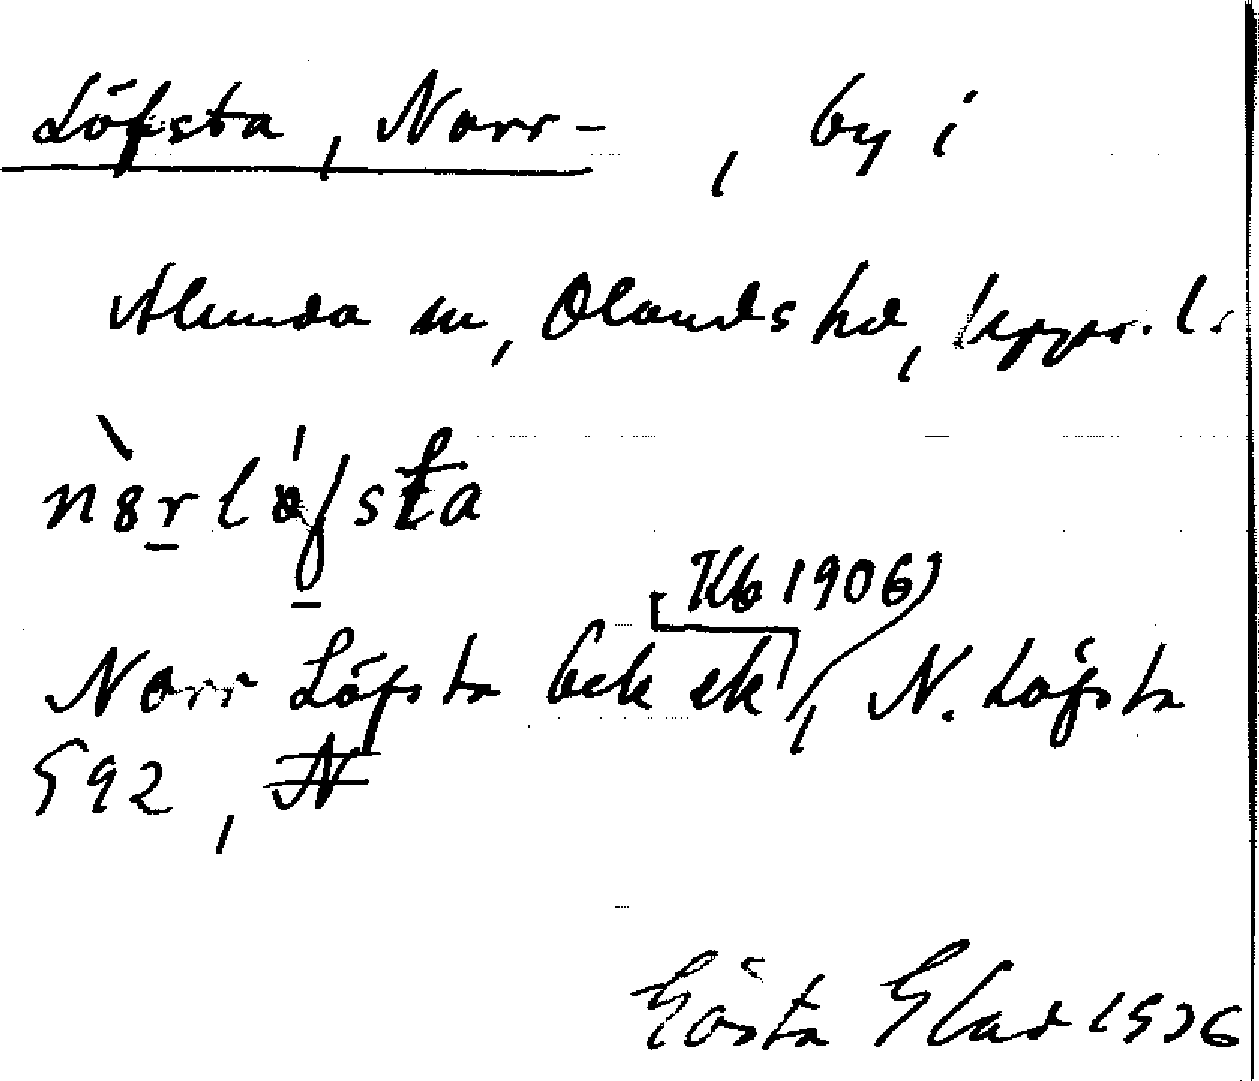 Löfsta, Norr-, by i
Alunda sn, Olands hd, Upps. l.
nòrlófsta
Kb 1906)
Norr Löfsta bek ek, N. Löfsta
G92, N
Gösta Glad 1926